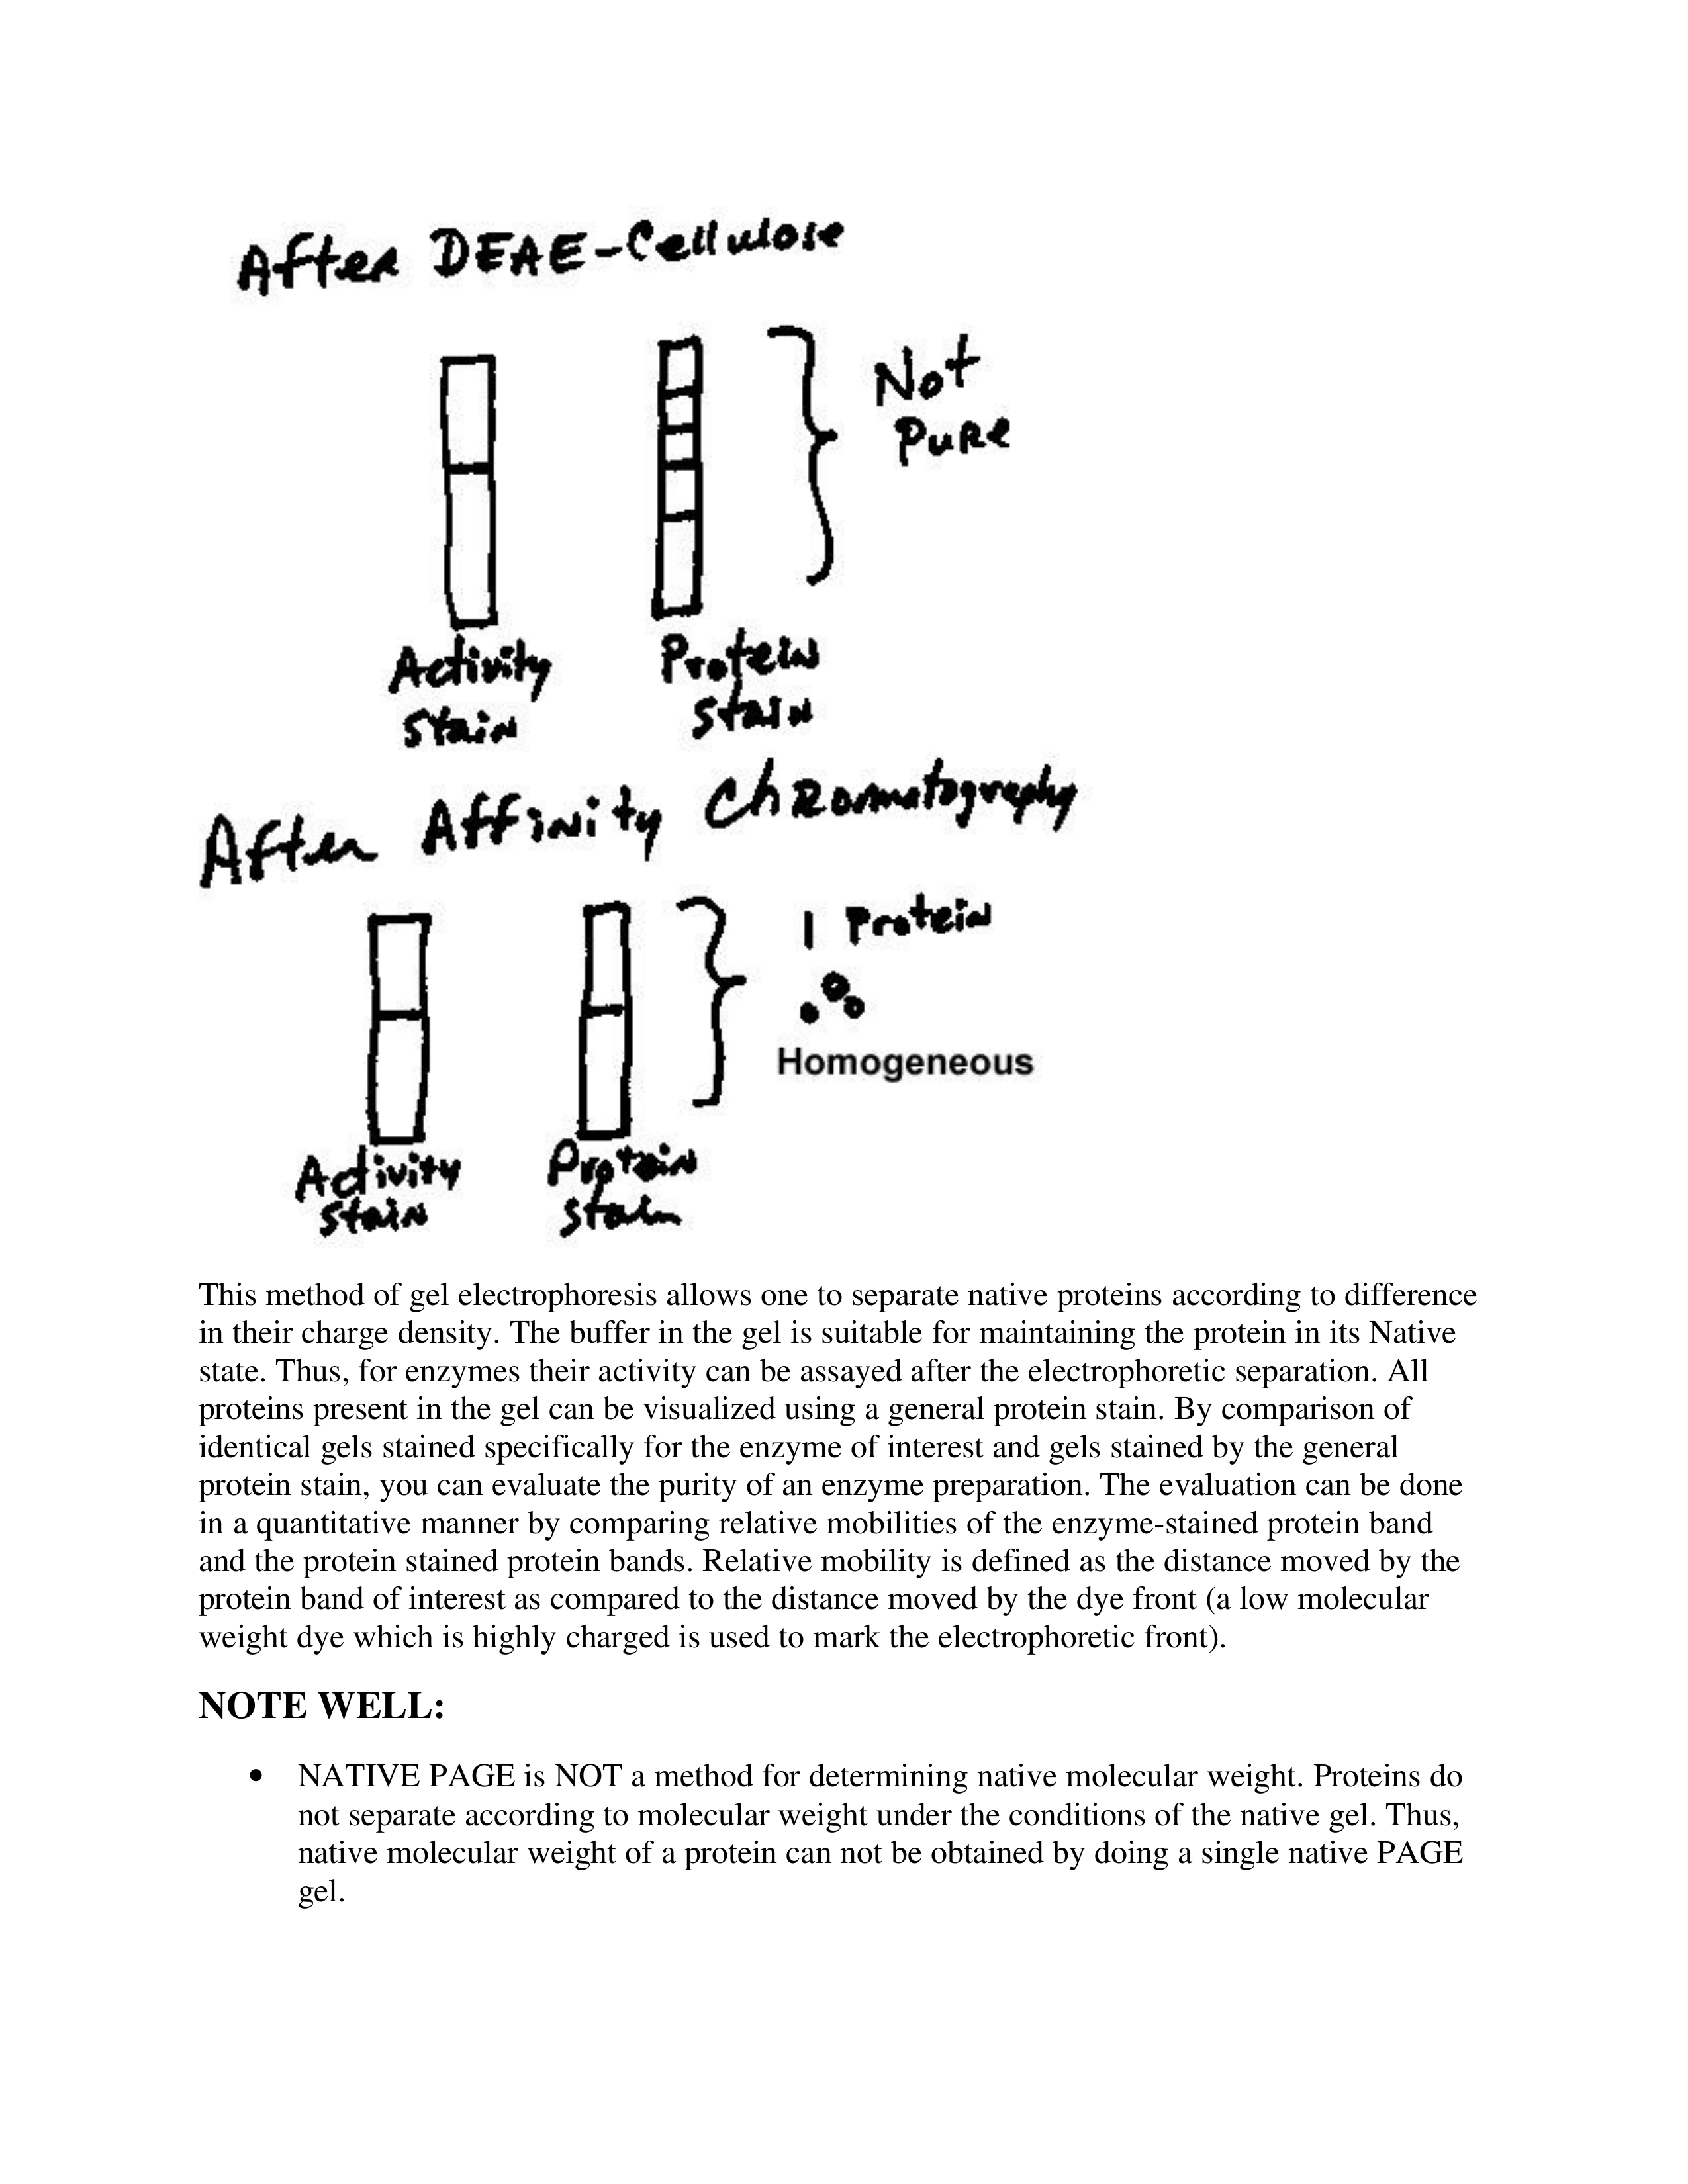 After DEAE-Cellulose
Not
Pure
Activity
Stain
Protein
Stain
After Affinity Chromatography
1 Protein
∴
Homogeneous
Activity
Stain
Protein
Stain
This method of gel electrophoresis allows one to separate native proteins according to difference
in their charge density. The buffer in the gel is suitable for maintaining the protein in its Native
state. Thus, for enzymes their activity can be assayed after the electrophoretic separation. All
proteins present in the gel can be visualized using a general protein stain. By comparison of
identical gels stained specifically for the enzyme of interest and gels stained by the general
protein stain, you can evaluate the purity of an enzyme preparation. The evaluation can be done
in a quantitative manner by comparing relative mobilities of the enzyme-stained protein band
and the protein stained protein bands. Relative mobility is defined as the distance moved by the
protein band of interest as compared to the distance moved by the dye front (a low molecular
weight dye which is highly charged is used to mark the electrophoretic front).
NOTE WELL:
• NATIVE PAGE is NOT a method for determining native molecular weight. Proteins do
not separate according to molecular weight under the conditions of the native gel. Thus,
native molecular weight of a protein can not be obtained by doing a single native PAGE
gel.